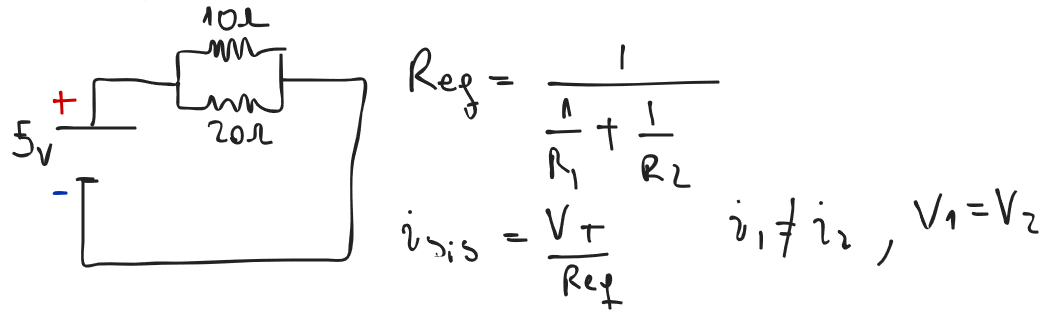 10Ω
20Ω
+
5v
-
Req = 1 / (1/R1 + 1/R2)
isis = VT / Req
i1 ≠ i2 , V1 = V2